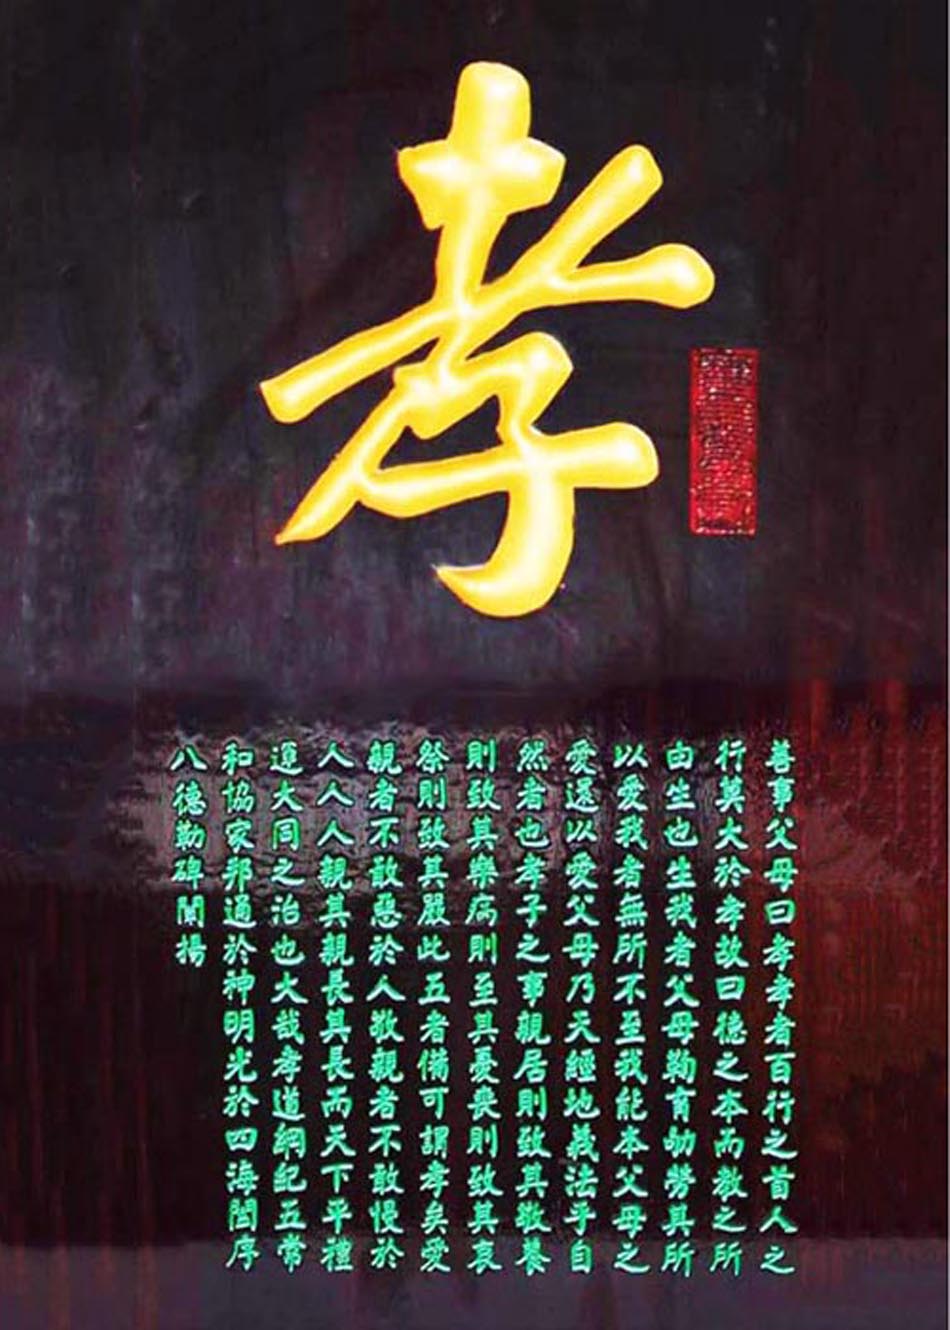 孝
善事父母曰孝孝者百行之首人之
行莫大於孝故曰德之本而教之所
由生也生我者父母勤育劬勞其所
以愛我者無所不至我能本父母之
愛還以愛父母乃天經地義法乎自
然者也孝子之事親居則致其敬養
則致其樂病則至其憂喪則致其哀
祭則致其嚴此五者備可謂孝矣愛
親者不敢惡於人敬親者不敢慢於
人人人親其親長其長而天下平禮
運大同之治也大哉孝道綱紀五常
和協家邦通於神明光於四海閭序
八德勒碑闡揚